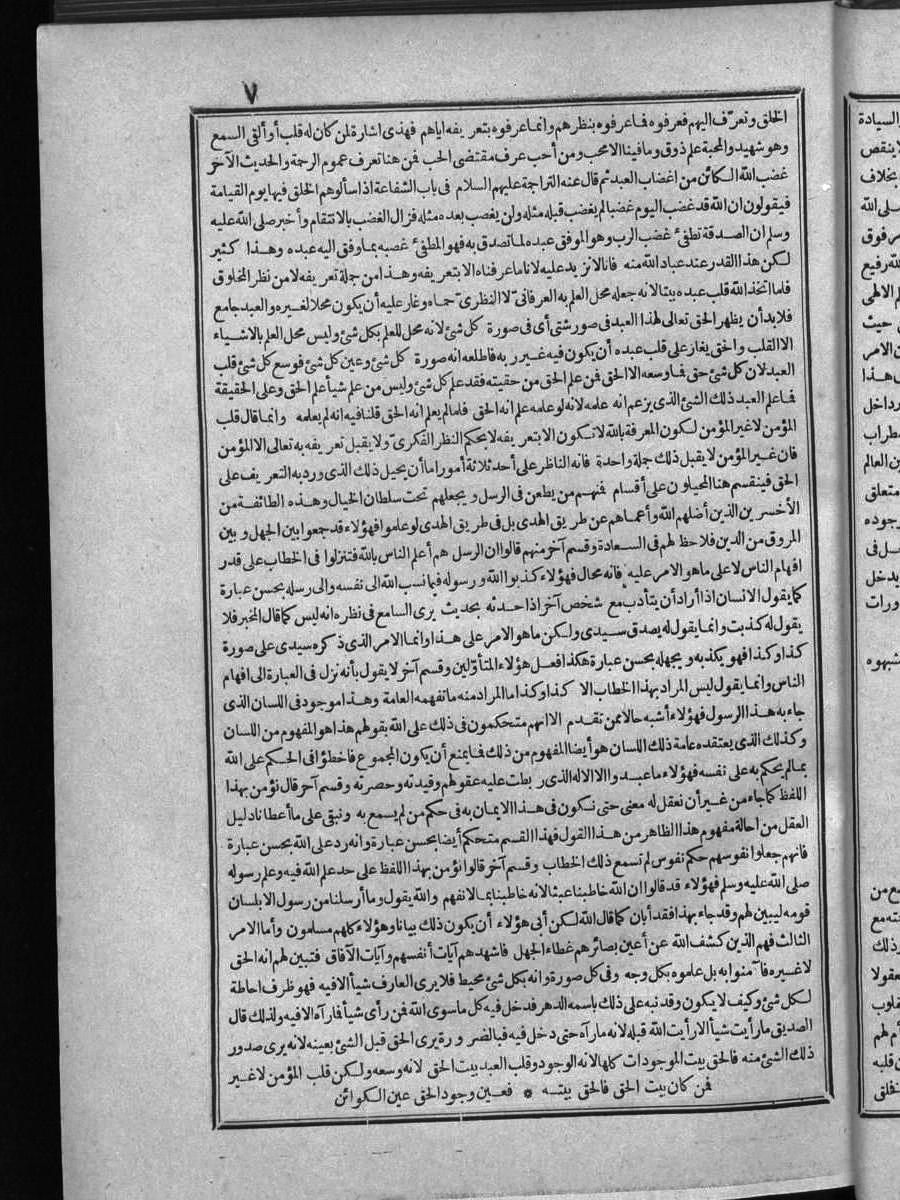 ٧
الخلق وتعرّف اليهم فعرفوه فاعرفوه بنظرهم وانما عرفوه بتعريفه اياهم فهذى اشارة لمن كان له قلب أو ألقى السمع
وهو شهيد والمحبة علم ذوق وما فينا الا محب ومن أحب عرف مقتضى الحب فن هنا تعرف عموم الرحمة والحديث الآخر
غضب الله الكائن من اغضاب العبد ثم قال عنه التراجمة عليهم السلام فى باب الشفاعة اذا سألوهم الخلق فيها يوم القيامة
فيقولون ان الله قد غضب اليوم غضبا لم يغضب قبله مثله ولن يغضب بعده مثله فزال الغضب بالانتقام وأخبر صلى الله عليه
وسلم ان الصدقة تطفئ غضب الرب وهو الموفق عبده لما تصدق به فهو المطفئ غضبه بما وفق اليه عبده وهذا كثير
لكن هذا القدر عند عباد الله منه فانا لا نزيد عليه لانا ما عرفناه الا بتعريفه وهذا من جملة تعريفه لا من نظر المخلوق
فلما اتخذ الله قلب عبده بيتا لانه جعله محل العلم به العرفانىّ لا النظرىّ حماه وغار عليه أن يكون محلا لغيره والعبد جامع
فلا بد أن يظهر الحق تعالى لهذا العبد فى صور شتى أى فى صورة كل شئ لانه محل للعلم بكل شئ وليس محل العلم بالاشياء
الا القلب والحق يغار على قلب عبده أن يكون فيه غير ربه فاطلعه انه صورة كل شئ وعين كل شئ فوسع كل شئ قلب
العبد لان كل شئ حق فما وسعه الا الحق فن علم الحق من حقيته فقد علم كل شئ وليس من علم شيأ علم الحق وعلى الحقيقة
فما علم العبد ذلك الشئ الذى يزعم انه علمه لانه لو علمه علم انه الحق فلما لم يعلم انه الحق قلنا فيه انه لم يعلمه وانما قال قلب
المؤمن لا غير المؤمن لكون المعرفة بالله لا تكون الا بتعريفه لا بحكم النظر الفكرىّ ولا يقبل تعريفه به تعالى الا المؤمن
فان غير المؤمن لا يقبل ذلك جملة واحدة فانه الناظر على أحد ثلاثة أمور اما أن يحيل ذلك الذى ورد به التعريف على
الحق فينقسم هنا المحيلون على أقسام فنهم من يطعن فى الرسل ويجعلهم تحت سلطان الخيال وهذه الطائفة من
الأخسرين الذين أضلهم الله وأعماهم عن طريق الهدى بل فى طريق الهدى لو علموا فهؤلاء قد جعوا بين الجهل وبين
المروق من الدين فلا حظ لهم فى السعادة وقسم آخر منهم قالوا ان الرسل هم أعلم الناس بالله فتنزلوا فى الخطاب على قدر
افهام الناس لا على ما هو الامر عليه فانه محال فهؤلاء كذبوا الله ورسوله فيما نسب الله الى نفسه والى رسله بحسن عبارة
كما يقول الانسان اذا أراد أن يتأدب مع شخص آخر اذا حدثه بحديث يرى السامع فى نظره انه ليس كما قال المخبر فلا
يقول له كذبت وانما يقول له يصدق سيدى ولكن ما هو الامر على هذا وانما الامر الذى ذكره سيدى على صورة
كذا وكذا فهو يكذبه ويجهله بحسن عبارة هكذا فعل هؤلاء المتأوّلين وقسم آخر لا يقول بأنه نزل فى العبارة الى افهام
الناس وانما يقول ليس المراد بهذا الخطاب الا كذا وكذا ما المراد منه ما تفهمه العامة وهذا موجود فى اللسان الذى
جاء به هذا الرسول فهؤلاء أشبه حالا ممن تقدم الا انهم متحكمون فى ذلك على الله بقولهم هذا هو المفهوم من اللسان
وكذلك الذى يعتقده عامة ذلك اللسان هو أيضا المفهوم من ذلك فما يمنع أن يكون المجموع فاخطؤا فى الحكم على الله
بما لم يحكم به على نفسه فهؤلاء ما عبدوا الا الاله الذى ربطت عليه عقولهم وقيدته وحصرته وقسم آخر قال نؤمن بهذا
اللفظ كما جاء من غير أن نعقل له معنى حتى نكون فى هذا الايمان به فى حكم من لم يسمع به ونبقى على ما أعطانا دليل
العقل من احالة مفهوم هذا الظاهر من هذا القول فهذا القسم متحكم أيضا بحسن عبارة وانه رد على الله بحسن عبارة
فانهم جعلوا نفوسهم حكم نفوس لم تسمع ذلك الخطاب وقسم آخر قالوا نؤمن بهذا اللفظ على حد علم الله فيه وعلم رسوله
صلى الله عليه وسلم فهؤلاء قد قالوا ان الله خاطبنا عبثا لانه خاطبنا بما لا نفهم والله يقول وما أرسلنا من رسول الا بلسان
قومه ليبين لهم وقد جاء بهذا فقد أبان كما قال الله لكن أبى هؤلاء أن يكون ذلك بيانا وهؤلاء كلهم مسلمون وأما الامر
الثالث فهم الذين كشف الله عن أعين بصائرهم غطاء الجهل فاشهدهم آيات أنفسهم وآيات الآفاق فتبين لهم انه الحق
لا غيره فآمنوا به بل علموه بكل وجه وفى كل صورة وانه بكل شئ محيط فلا يرى العارف شيأ الا فيه فهو ظرف احاطة
لكل شئ وكيف لا يكون وقد نبه على ذلك باسمه الدهر فدخل فيه كل ما سوى الله فن رأى شيأ فما رآه الا فيه ولذلك قال
الصديق ما رأيت شيأ الا رأيت الله قبله لانه ما رآه حتى دخل فيه فبالضرورة يرى الحق قبل الشئ بعينه لانه يرى صدور
ذلك الشئ منه فالحق بيت الموجودات كلها لانه الوجود وقلب العبد بيت الحق لانه وسعه ولكن قلب المؤمن لا غير
فمن كان بيت الحق فالحق بيته * فعين وجود الحق عين الكوائن
والسيادة
لا ينقص
بخلاف
صلى الله
رفوق
لله رفيع
الالهى
حيث
الامر
هذا
داخل
طراب
ين العالم
متعلق
وجوده
يدخل
ورات
شبهوه
ذلك
معقولا
قلوب